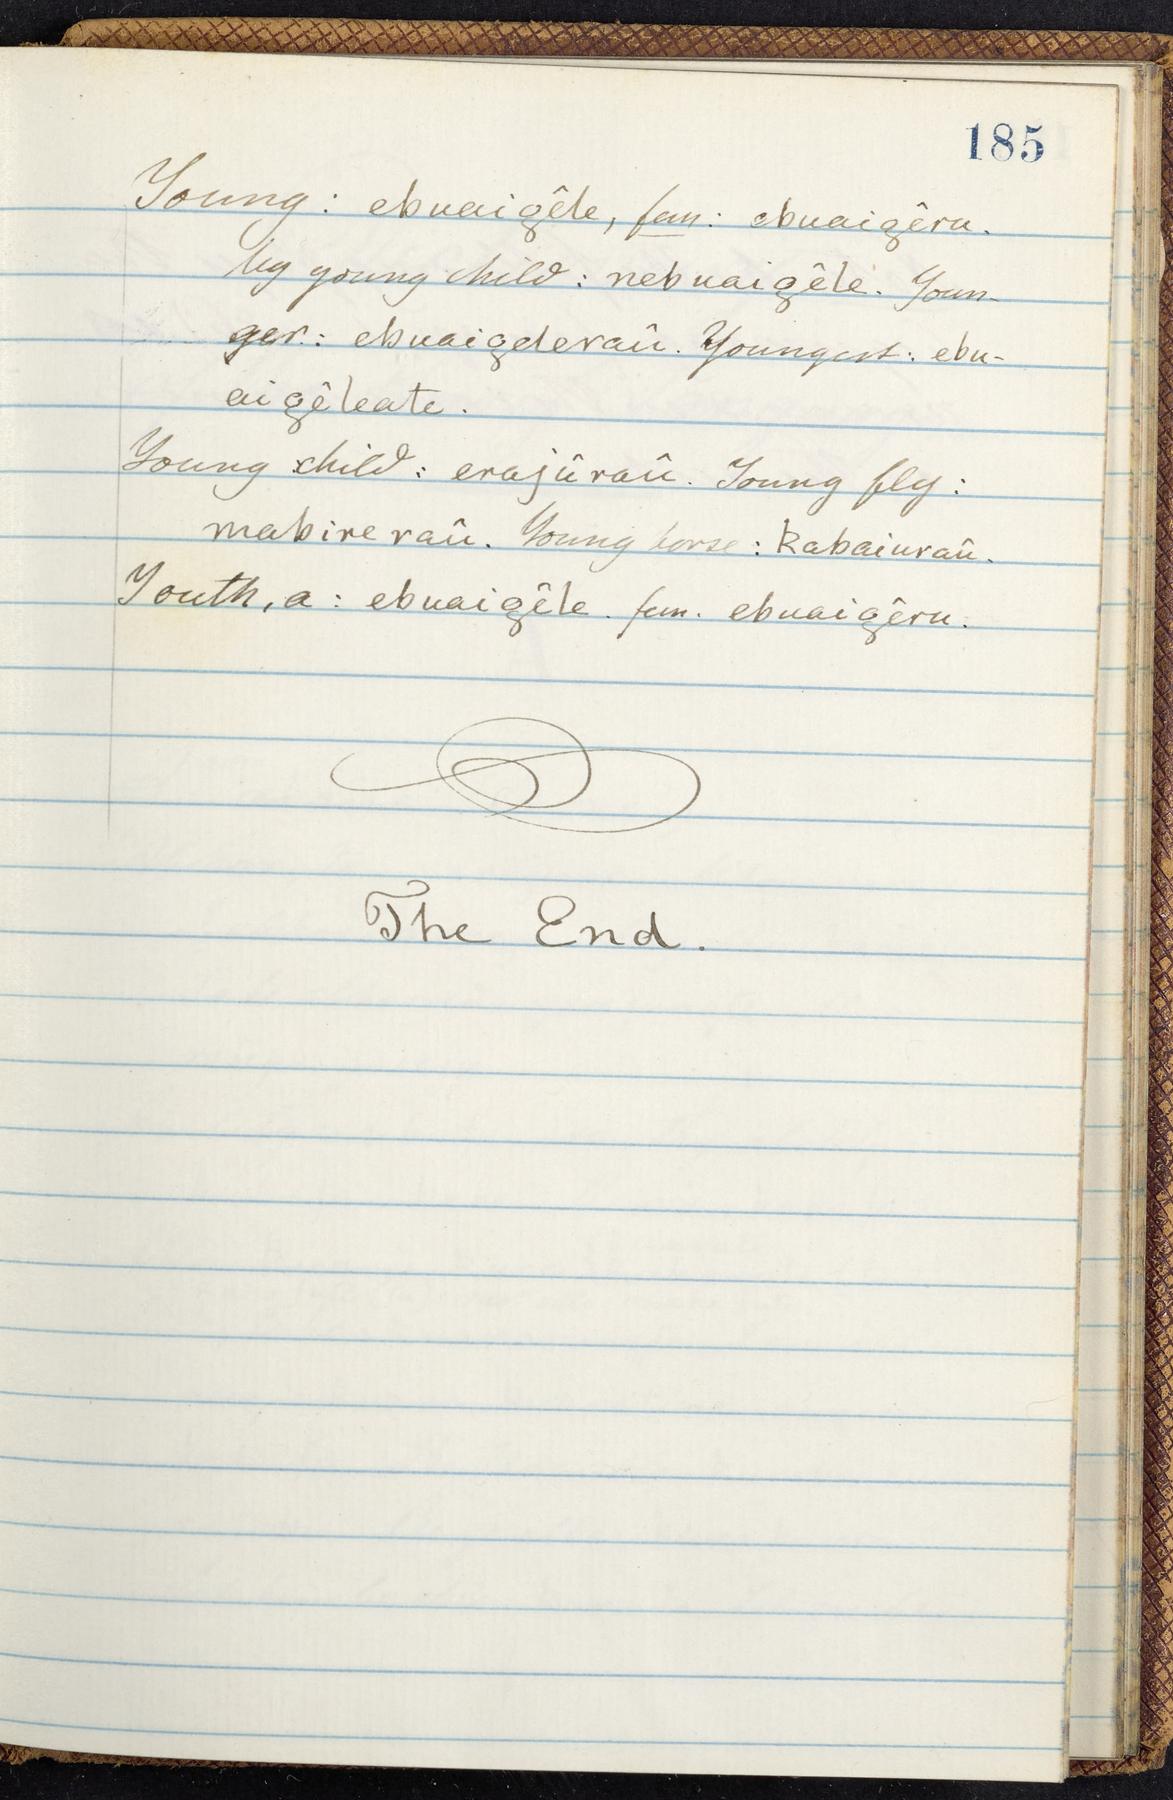 185
Young: ebuaigêle, fem: ebuaigêru.
My young child: nebuaigêle. Youn-
ger: ebuaigelevaû. Youngest: ebu-
aigêleate.
Young child: erajûraû. Young fly:
mabireraû. Young horse: kabaiuraû.
Youth, a: ebuaigêle. fem. ebuaigêru.
The End.